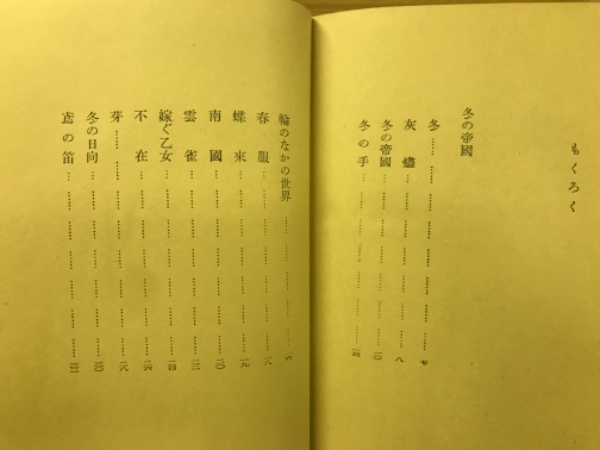 もくろく
冬の帝國
冬……七
灰燼……八
冬の帝國……一〇
冬の手……一四
輪のなかの世界……一六
春服……一八
蝶來……一九
南國……二〇
雲雀……二二
嫁ぐ乙女……二四
不在……二六
芽……二八
冬の日向……三〇
鳶の笛……三二